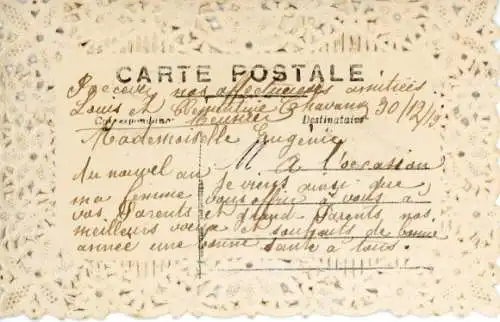 CARTE POSTALE
Recevez nos affectueuses amitiés
Louis et Clémentine Chavanz 30/12/13
Correspondance Meunier Destinataire
Mademoiselle Eugénie
M. A l'occasion
du nouvel an je viens ainsi que
ma femme vous offrir à vous à
vos Parents et grand Parents nos
meilleurs vœux et souhaits de bonne
année une bonne santé à tous.